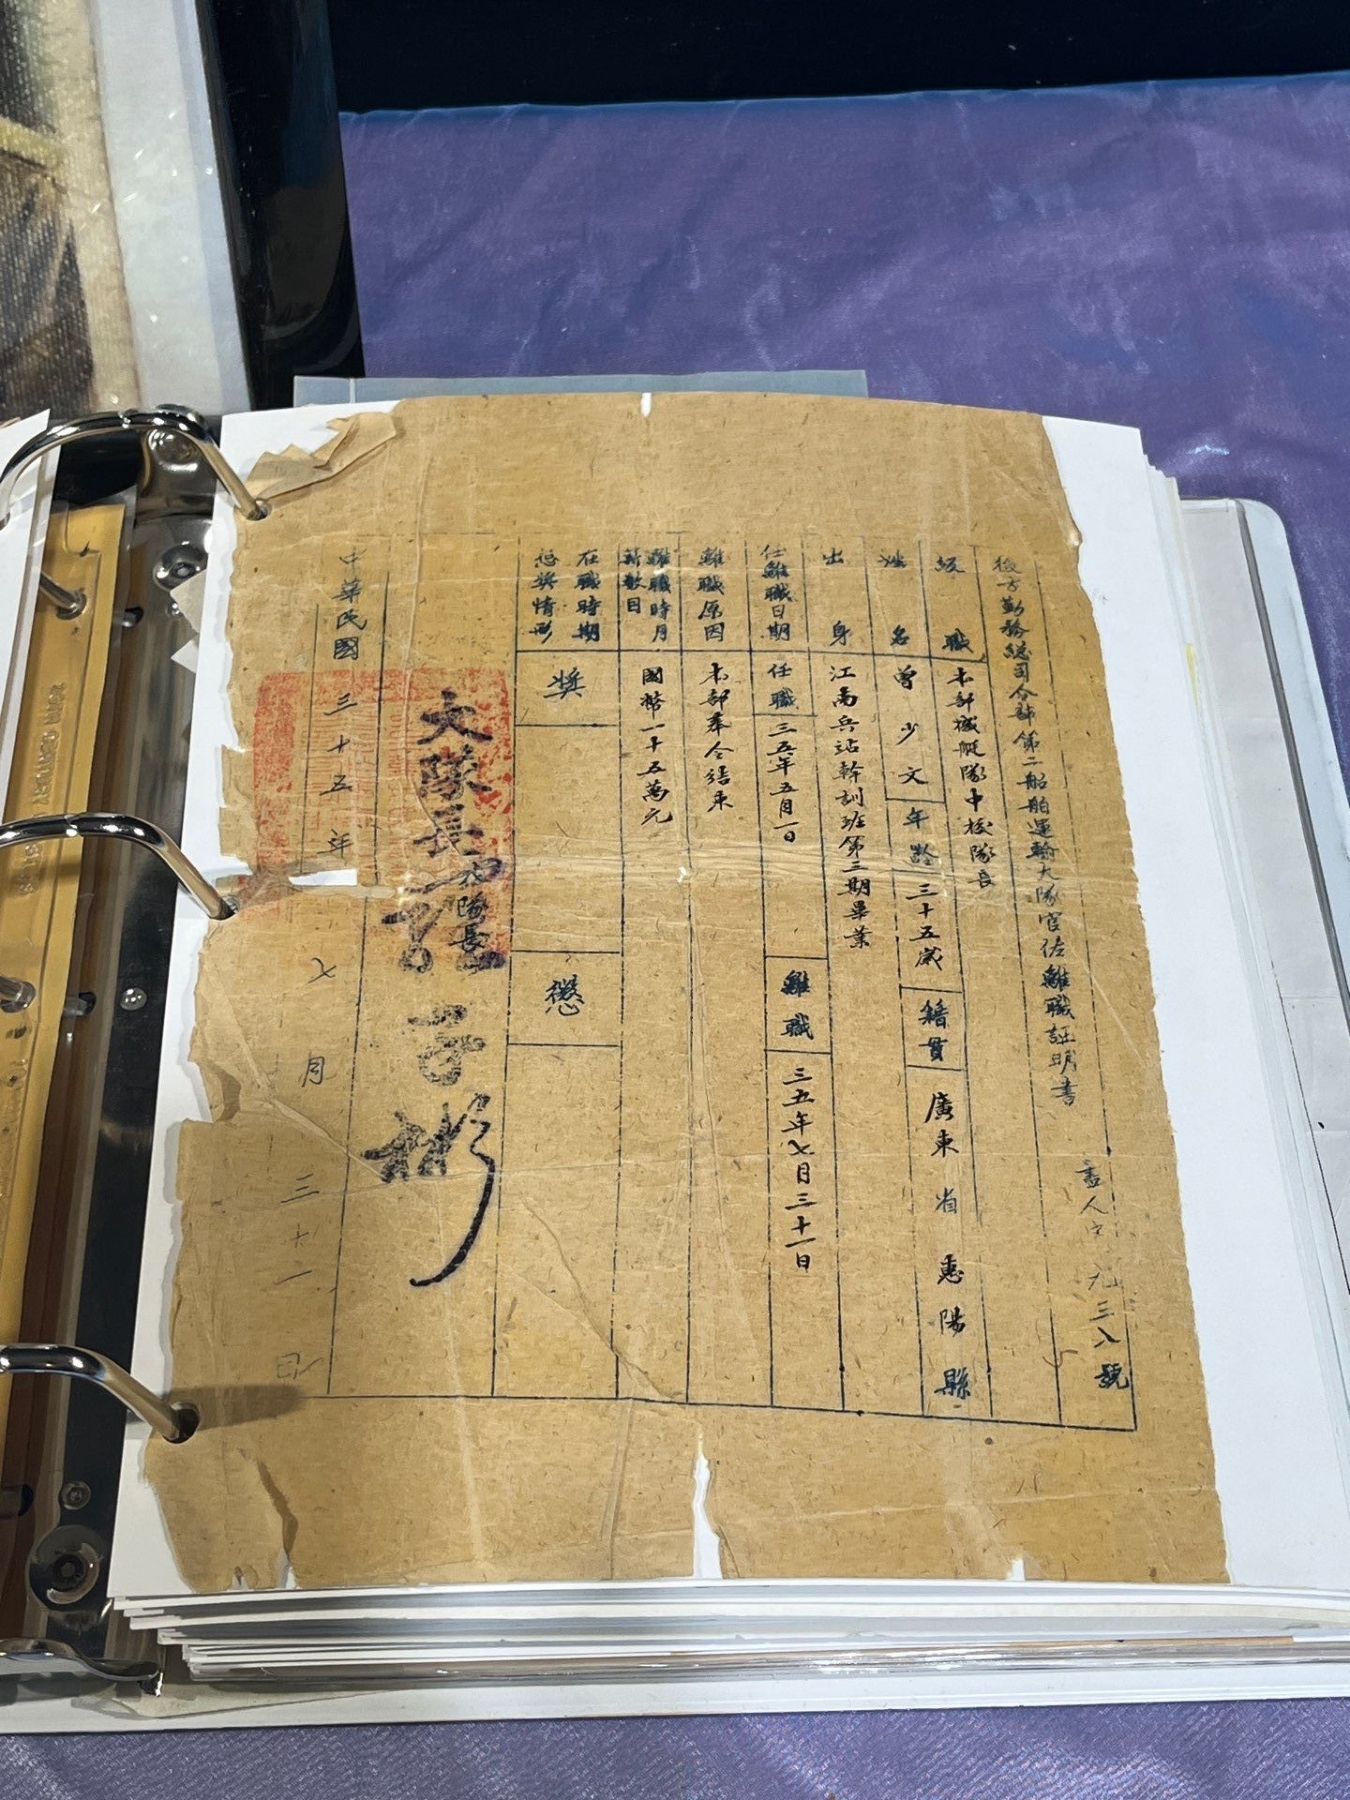 後方勤務總司令部第二船舶運輸大隊官佐離職証明書
人字 九三八號
級職 本部機艇隊中校隊長
姓名 曾少文 年齡 三十五歲 籍貫 廣東省惠陽縣
出身 江南兵站幹訓班第三期畢業
任離職日期 任職 三五年五月一日 離職 三五年七月三十一日
離職原因 本部奉令結束
離職時月薪數目 國幣一十五萬元
在職時期懲獎情形 獎 懲
大隊長
隊長
子彬
中華民國三十五年七月三十一日